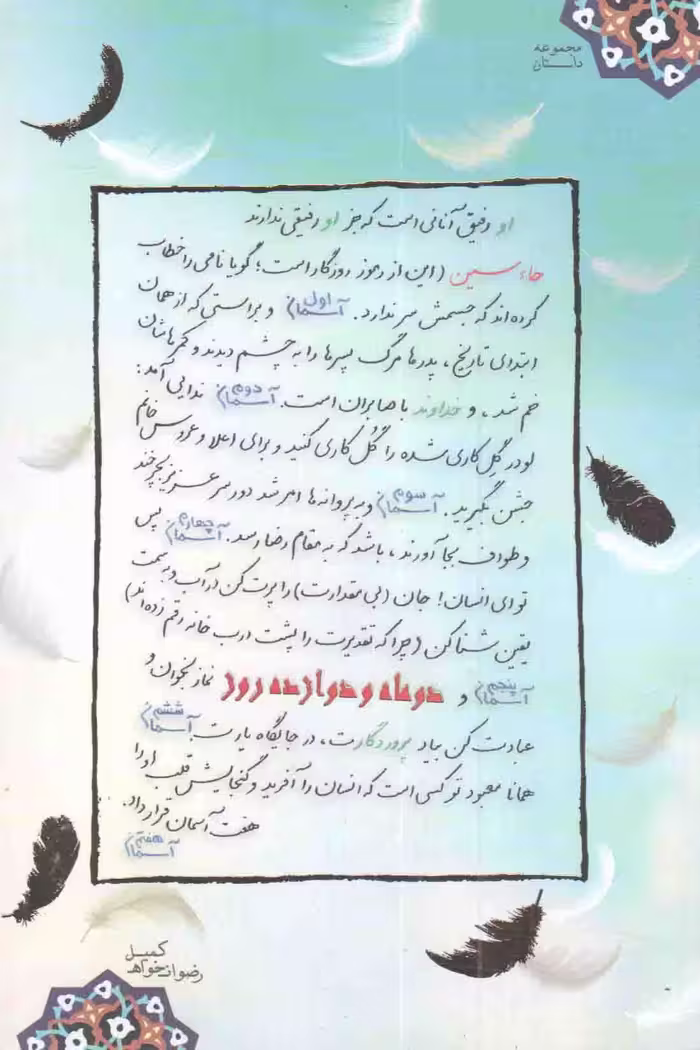 مجموعه
داستان
او رفیق آنانی است که جز او رفیقی ندارند
حاء سین (این از رموز روزگار است؛ گویا نامی را خطاب
کرده‌اند که جسمش سر ندارد. آسمان اول و براستی که از همان
ابتدای تاریخ، پدرها مرگ پسرها را به چشم دیدند و کمرهاشان
خم شد، و خداوند با صابران است. آسمان دوم ندایی آمد:
لودر گِل کاری شده را گُل کاری کنید و برای اعلا و عروس خانم
جشن بگیرید. آسمان سوم و به پروانه‌ها امر شد دور سر عزیز بچرخند
و طواف بجا آورند، باشد که به مقام رضا رسند. آسمان چهارم پس
تو ای انسان! جان (بی مقدارت) را پرت کن در آب و به سمت
یقین شنا کن (چرا که تقدیرت را پشت درب خانه رقم زده‌اند)
آسمان پنجم و دو ماه و دوازده روز نماز بخوان و
عبادت کن بیاد پروردگارت، در جایگاه یارت. آسمان ششم
همانا معبود تو کسی است که انسان را آفرید و گنجایش قلب او را
هفت آسمان قرار داد.
آسمان هفتم
کمیل
رضوانخواه